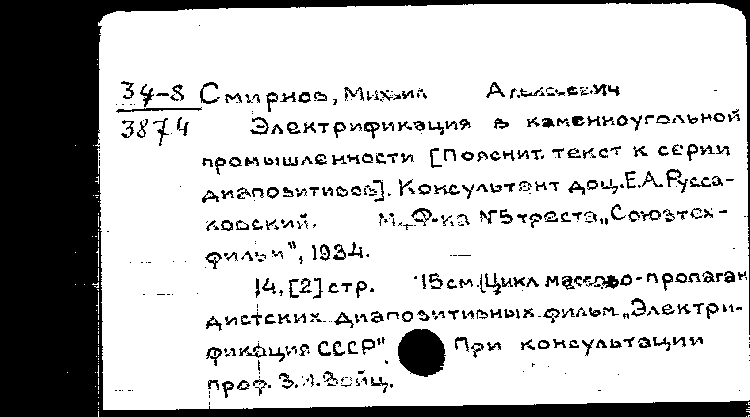 34-8 Смирнов, Михаил
3874 Электрификация в каменноугольной
промышленности [Пояснит. текст к серии
диапозитивов]. Консультант доц. Е.А. Русса-
ковский. М., Ф-ка №5 треста „Союзтех-
фильм", 1934.
14, [2] стр. 15 см. (Цикл массово-пропаган
дистских диапозитивных фильм „Электри-
фикация СССР". При консультации
проф.